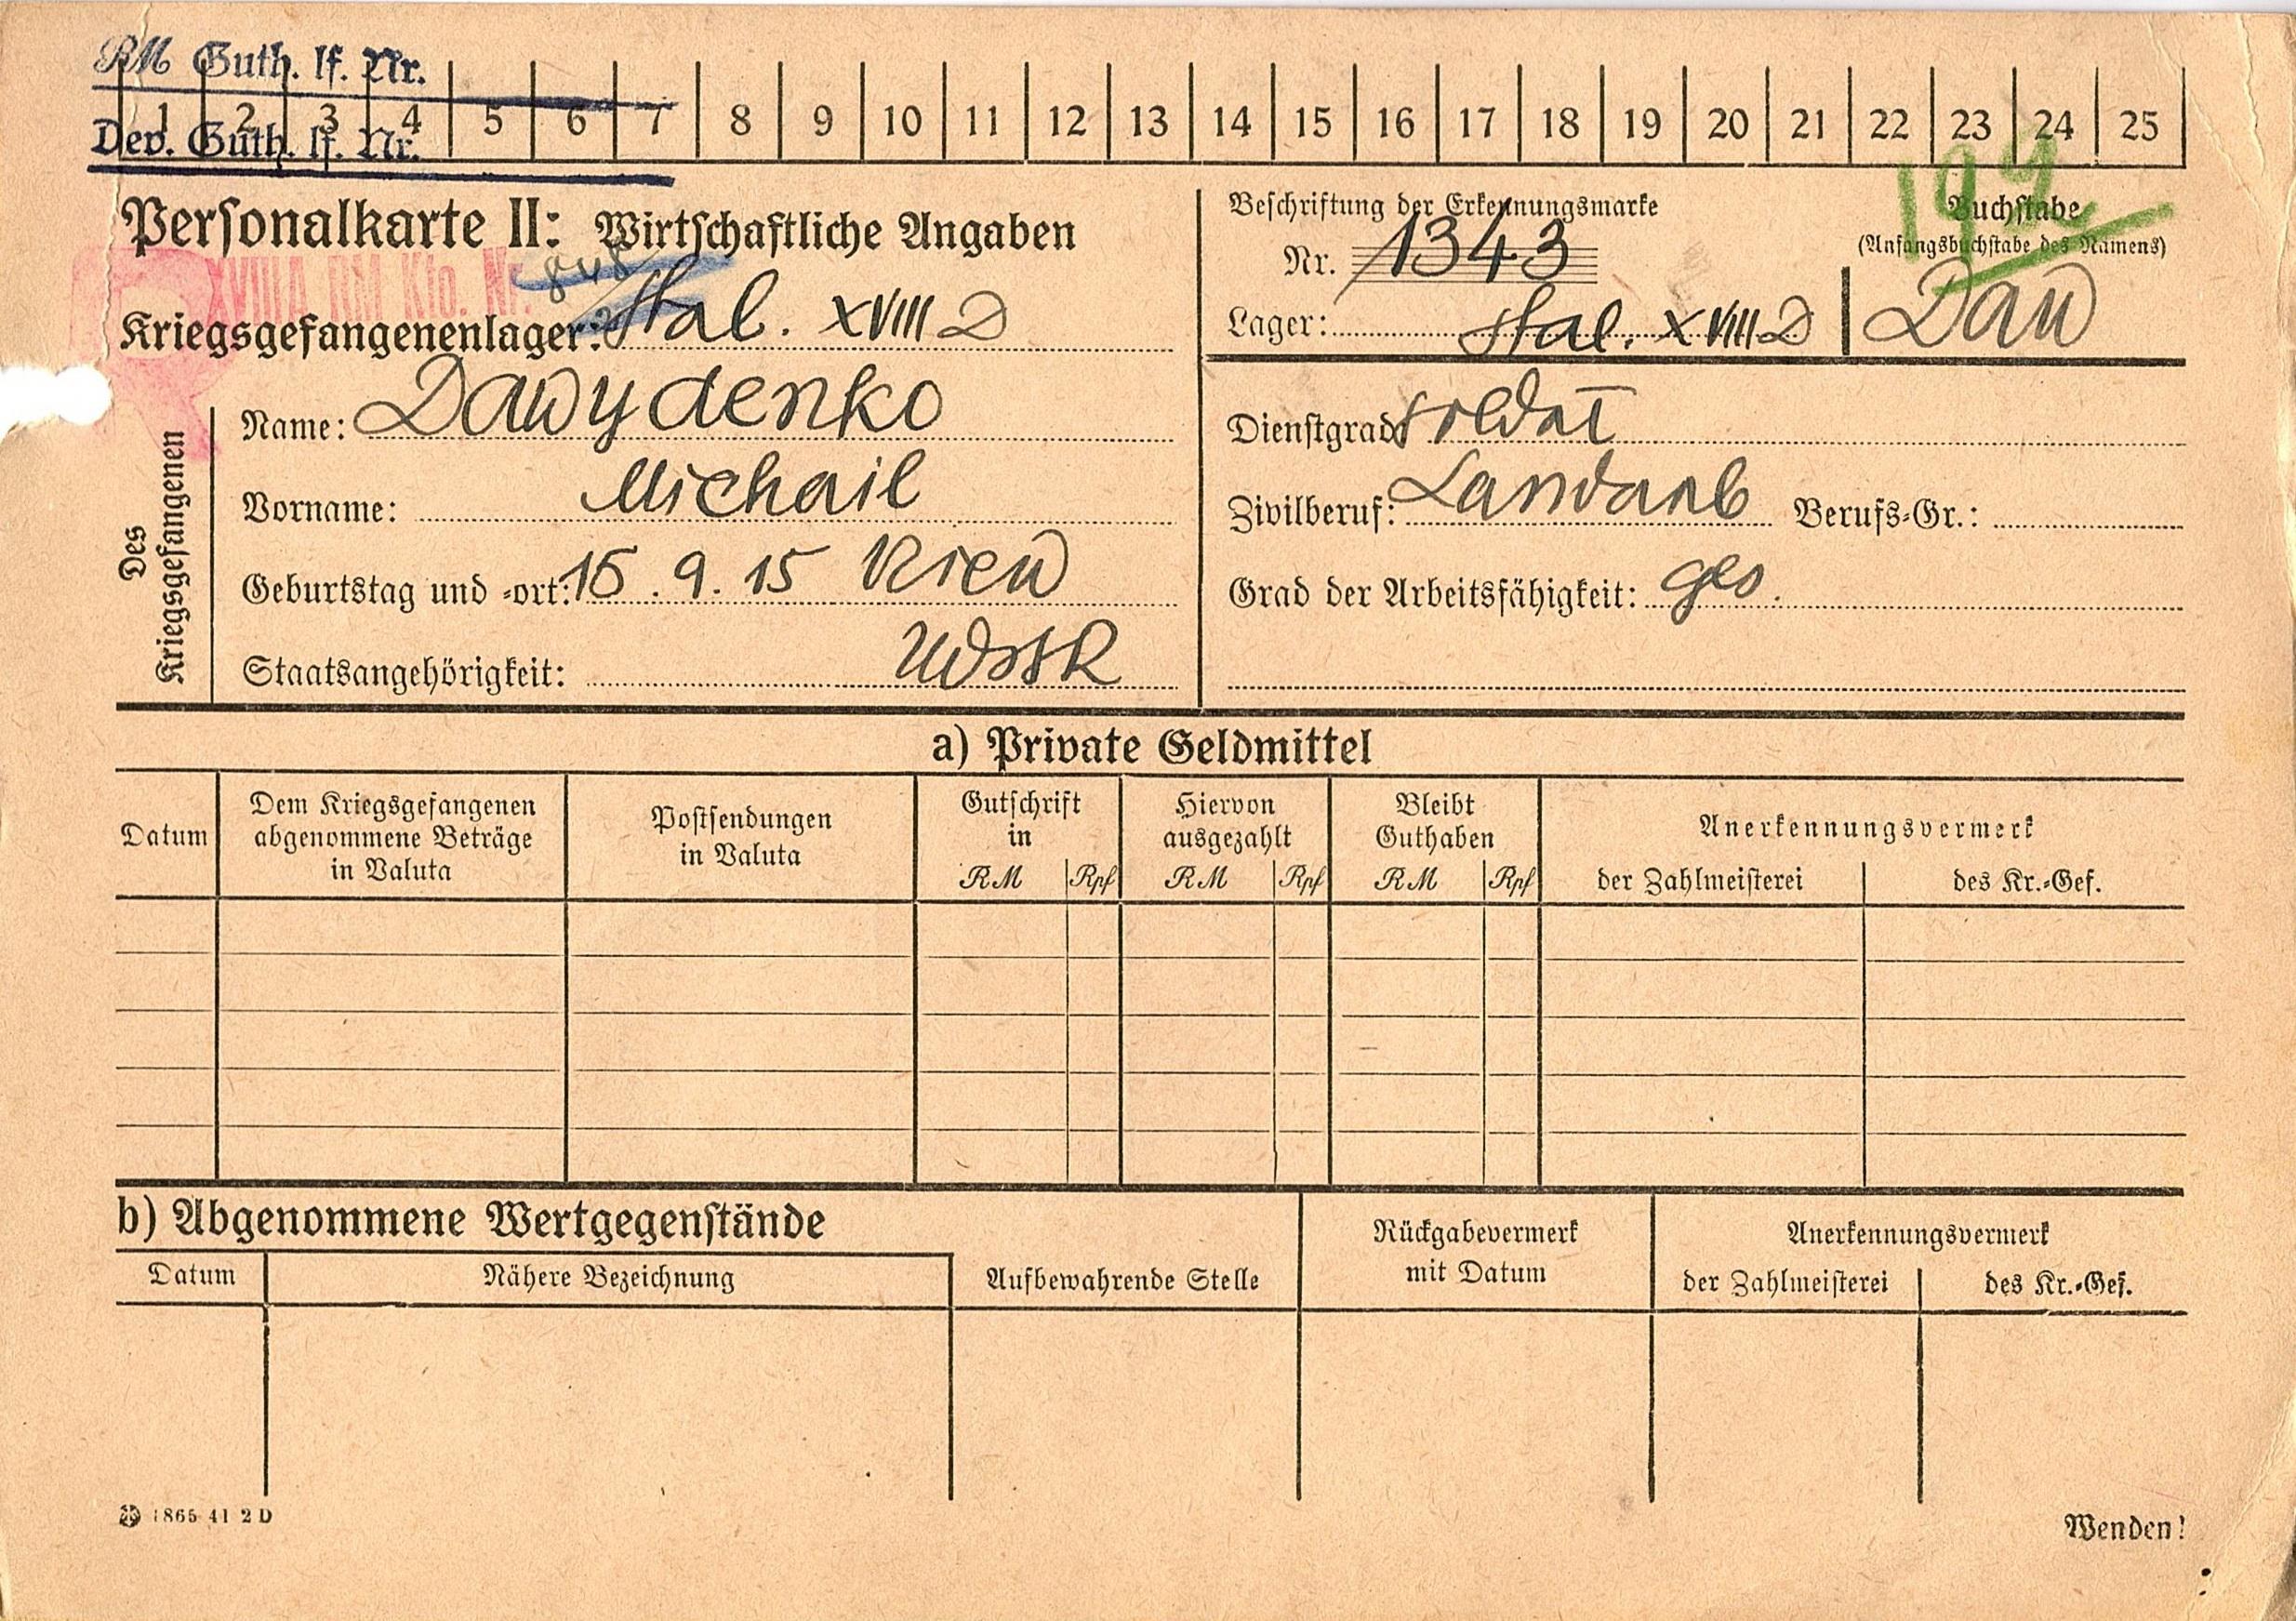 RM Guth. lf. Nr.
1 2 3 4 5 6 7 8 9 10 11 12 13 14 15 16 17 18 19 20 21 22 23 24 25
Dev. Guth. lf. Nr.
Personalkarte II: Wirtschaftliche Angaben
XVIIIA RM Kto. Nr. 848
Kriegsgefangenenlager: Stal. XVIII D
Beschriftung der Erkennungsmarke
Nr. 1343
Lager: Stal. XVIII D
Buchstabe
(Anfangsbuchstabe des Namens)
Daw
Des Kriegsgefangenen
Name: Dawydenko
Vorname: Michail
Geburtstag und -ort: 15.9.15 Kiew
Staatsangehörigkeit: UdSSR
Dienstgrad: Soldat
Zivilberuf: Landarb Berufs-Gr.:
Grad der Arbeitsfähigkeit: ges.
a) Private Geldmittel
Datum
Dem Kriegsgefangenen
abgenommene Beträge
in Valuta
Postsendungen
in Valuta
Gutschrift
in
RM Rpf
Hiervon
ausgezahlt
RM Rpf
Bleibt
Guthaben
RM Rpf
Anerkennungsvermerk
der Zahlmeisterei des Kr.-Gef.
b) Abgenommene Wertgegenstände
Datum Nähere Bezeichnung
Aufbewahrende Stelle
Rückgabevermerk
mit Datum
Anerkennungsvermerk
der Zahlmeisterei des Kr.-Gef.
1865 41 2 D
Wenden!